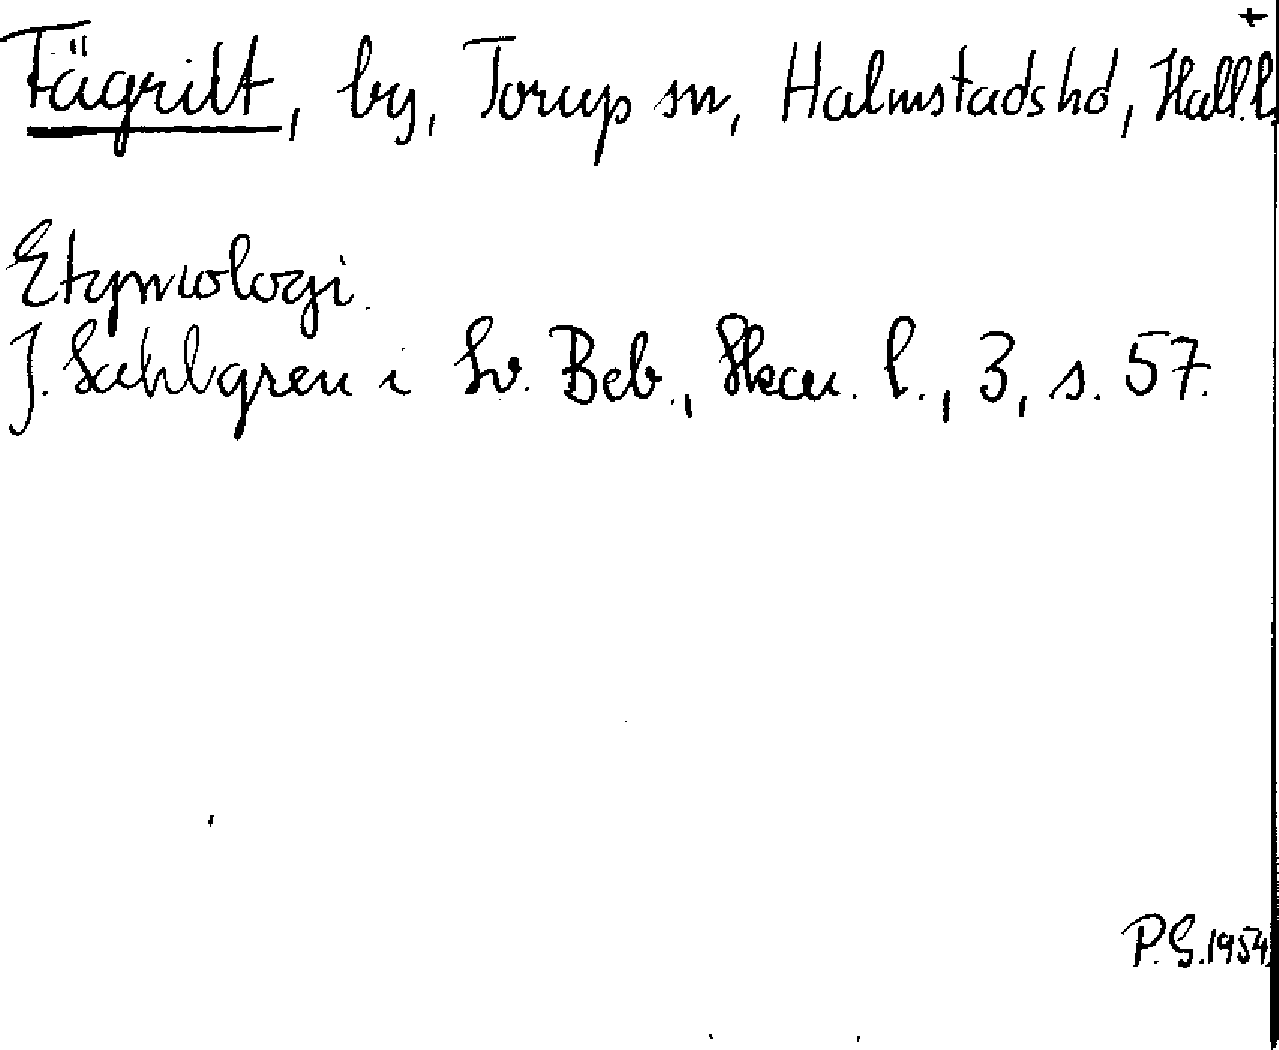 +
Fägrilt, by, Torup sn, Halmstads hd, Hall.l.
Etymologi.
J. Sahlgren i Sv. Beb., Skån. l., 3, s. 57.
P.G. 1954